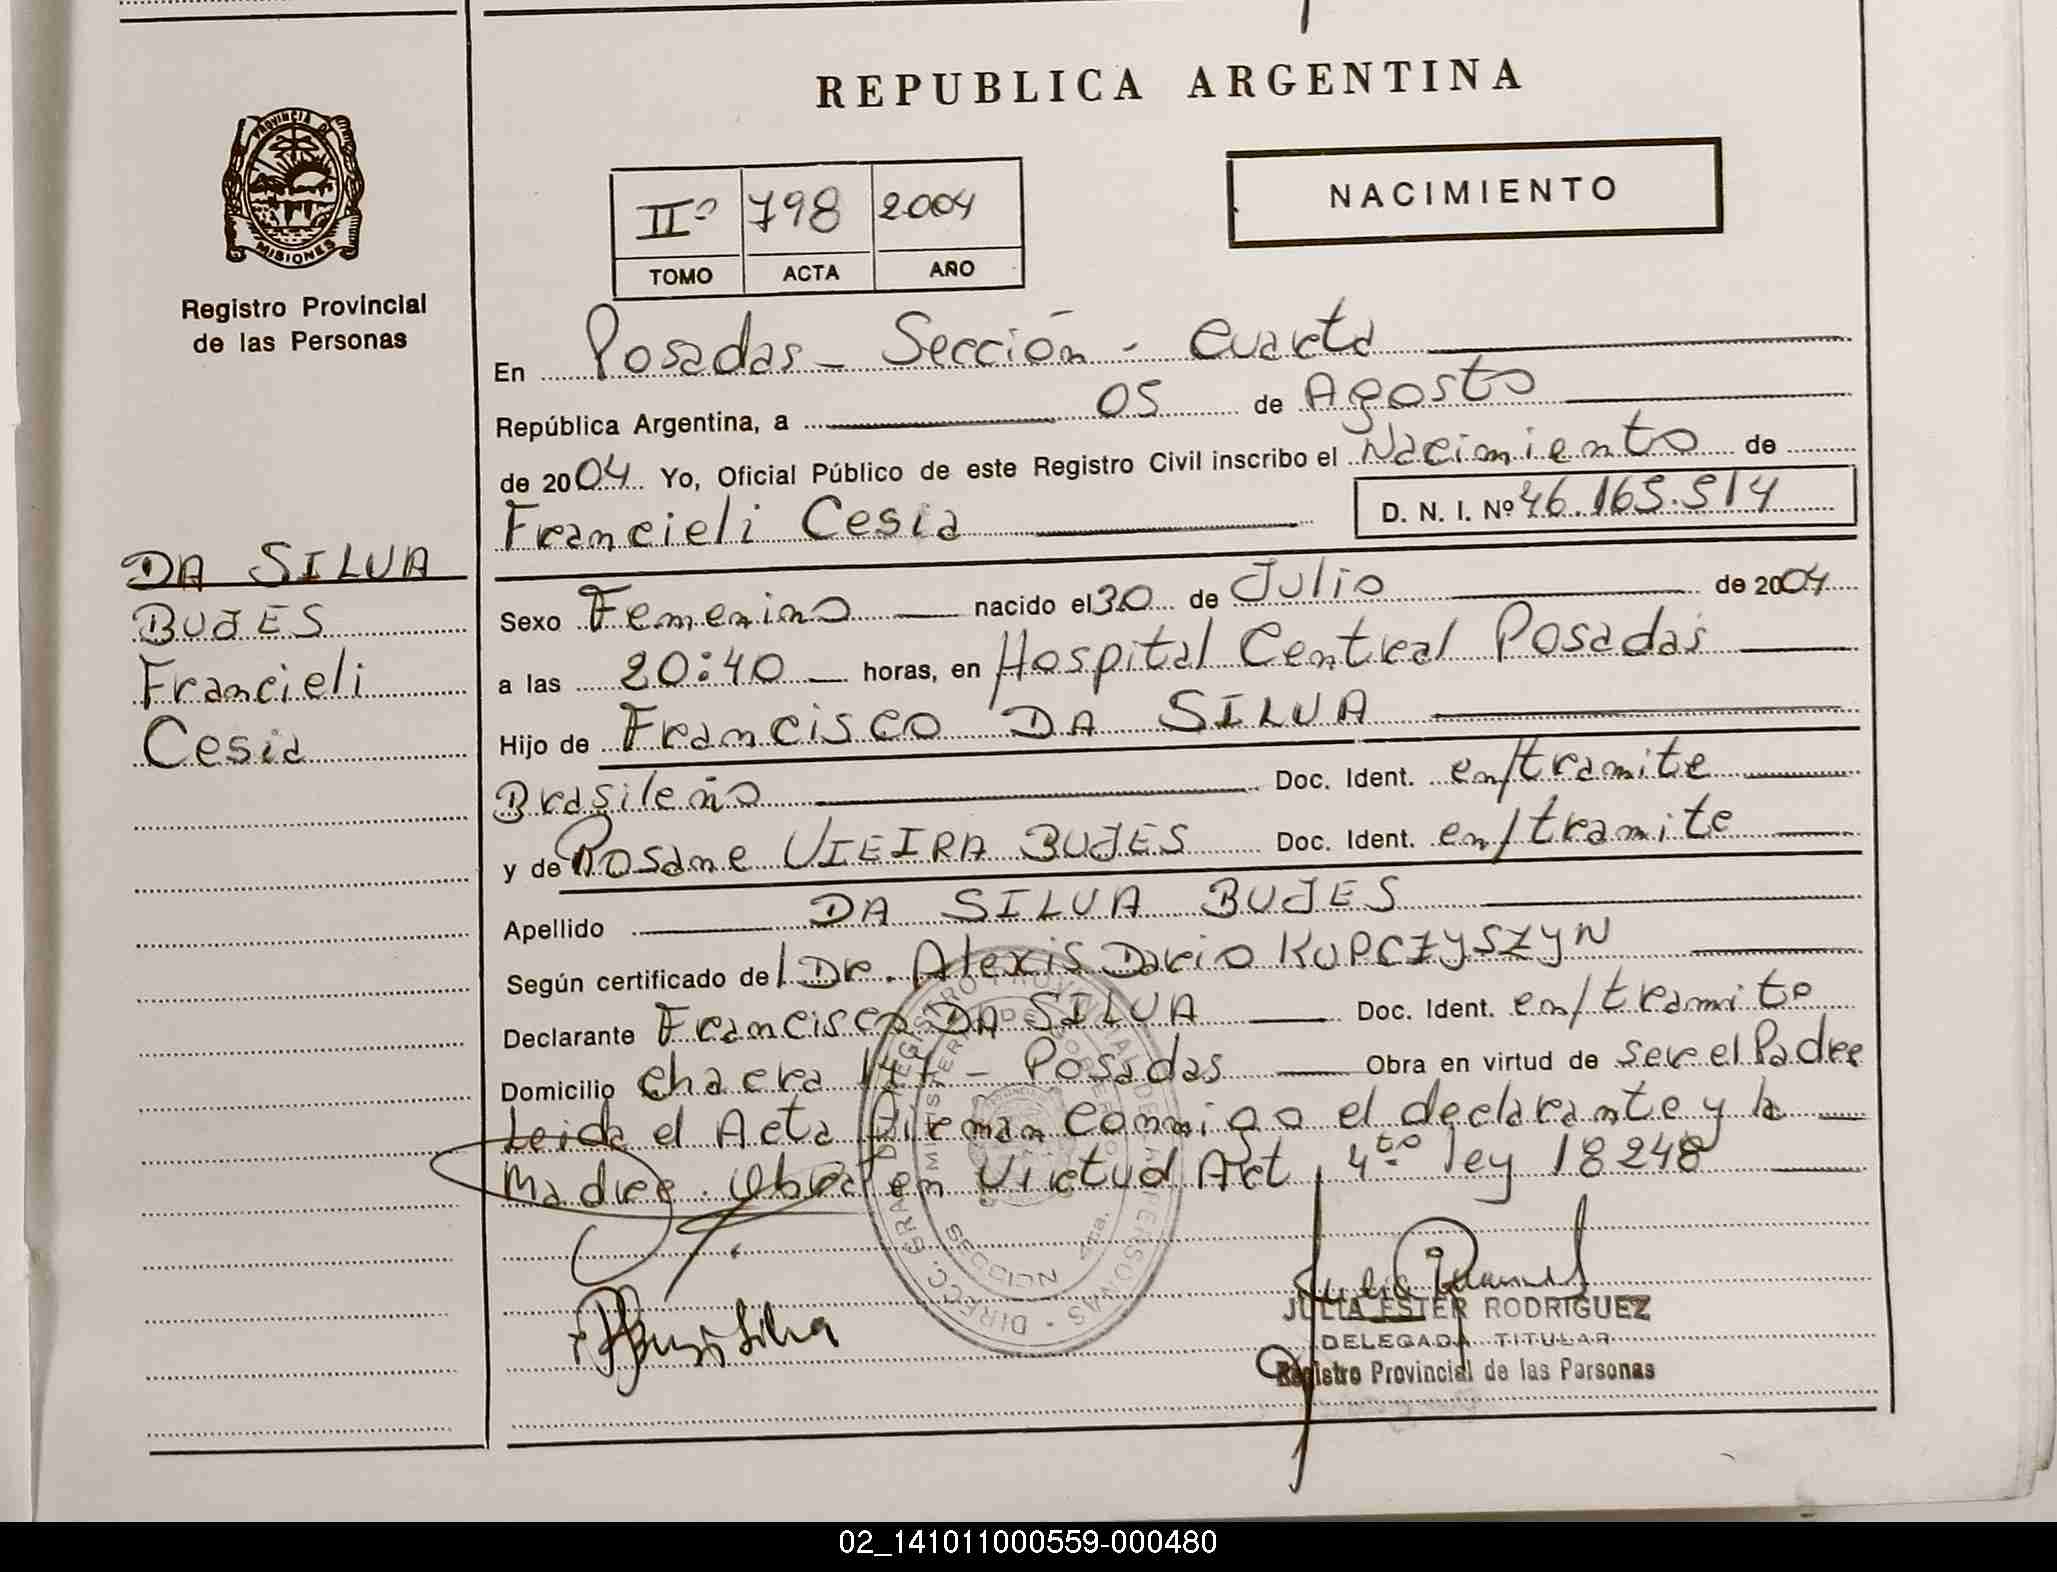 REPUBLICA ARGENTINA
PROVINCIA D
MISIONES
Registro Provincial
de las Personas
IIº 798 2004
TOMO ACTA AÑO
NACIMIENTO
En Posadas - Sección - Cuarta
República Argentina, a 05 de Agosto
de 2004 Yo, Oficial Público de este Registro Civil inscribo el Nacimiento de
Francieli Cesia D. N. I. Nº 46.165.514
DA SILVA
BUJES
Francieli
Cesia
Sexo Femenino nacido el 30 de Julio de 2004
a las 20:40 horas, en Hospital Central Posadas
Hijo de Francisco DA SILVA
Brasileño Doc. Ident. en/tramite
y de Rosane VIEIRA BUJES Doc. Ident. en/tramite
Apellido DA SILVA BUJES
Según certificado del Dr. Alexis Dario KUPCZYSZYN
Declarante Francisco DA SILVA Doc. Ident. en/tramite
Domicilio Chacra - Posadas Obra en virtud de ser el Padre
Leida el Acta Firman Conmigo el declarante y la
Madre. Obra en Virtud Art. 4to ley 18248
JULIA ESTER RODRIGUEZ
DELEGADA TITULAR
Registro Provincial de las Personas
02_141011000559-000480